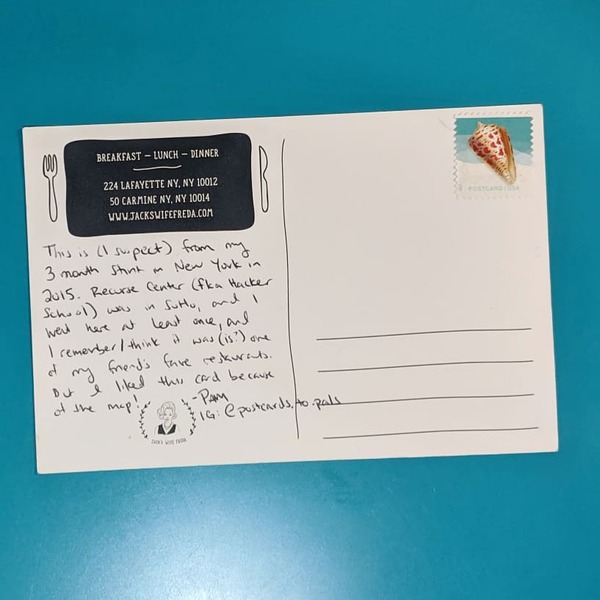 BREAKFAST – LUNCH – DINNER
224 LAFAYETTE NY, NY 10012
50 CARMINE NY, NY 10014
WWW.JACKSWIFEFREDA.COM
POSTCARD USA
This is (I suspect) from my
3 month stint in New York in
2015. Recurse Center (fka Hacker
School) was in SoHo, and I
went here at least once, and
I remember/think it was (is?) one
of my friend's fave restaurants.
But I liked this card because
of the map!
-Pam
IG: @postcards.to.pals
JACK'S WIFE FREDA